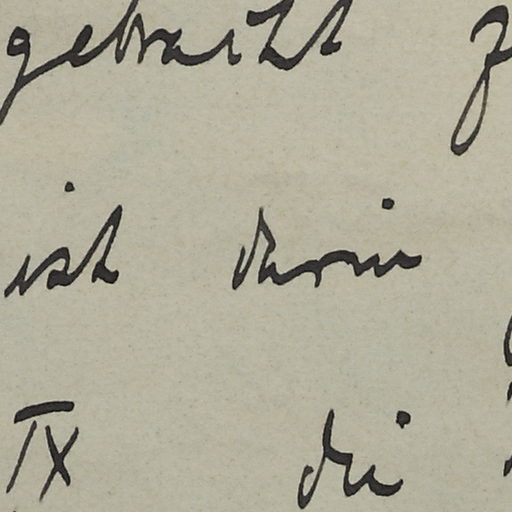 gebracht
ist darin
IX die